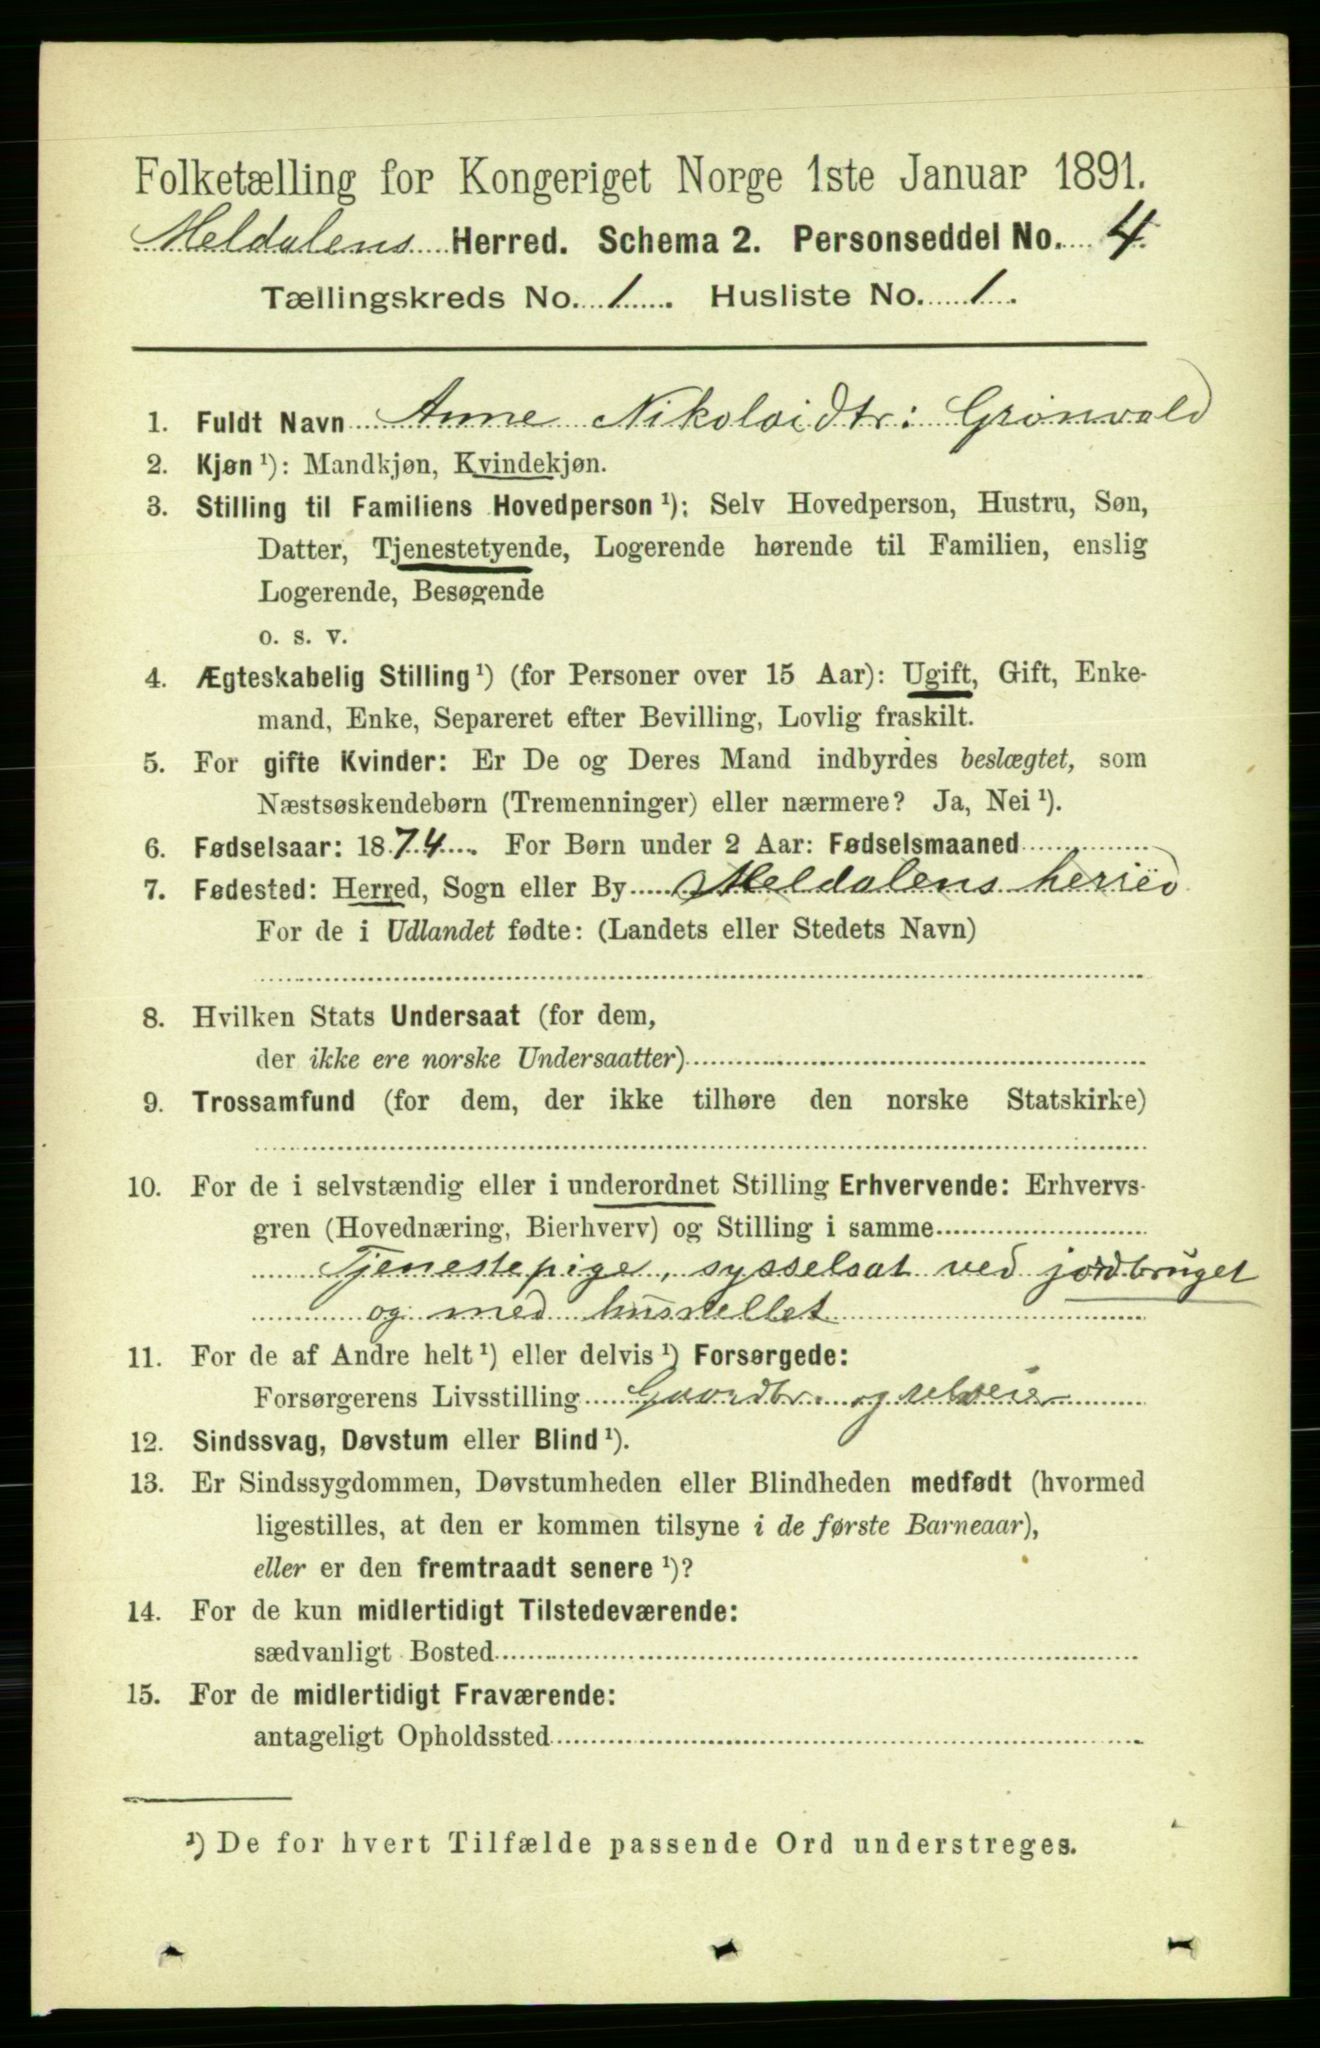 Folketælling for Kongeriget Norge 1ste Januar 1891.
Meldalens Herred. Schema 2. Personseddel No. 4.
Tællingskreds No. 1. Husliste No. 1.
1. Fuldt Navn Anne Nikolaidtr: Grønvold
2. Kjøn ¹): Mandkjøn, Kvindekjøn.
3. Stilling til Familiens Hovedperson ¹): Selv Hovedperson, Hustru, Søn,
Datter, Tjenestetyende, Logerende hørende til Familien, enslig
Logerende, Besøgende
o. s. v.
4. Ægteskabelig Stilling ¹) (for Personer over 15 Aar): Ugift, Gift, Enke-
mand, Enke, Separeret efter Bevilling, Lovlig fraskilt.
5. For gifte Kvinder: Er De og Deres Mand indbyrdes beslægtet, som
Næstsøskendebørn (Tremenninger) eller nærmere? Ja, Nei ¹).
6. Fødselsaar: 1874. For Børn under 2 Aar: Fødselsmaaned
7. Fødested: Herred, Sogn eller By Meldalens herred
For de i Udlandet fødte: (Landets eller Stedets Navn)
8. Hvilken Stats Undersaat (for dem,
der ikke ere norske Undersaatter)
9. Trossamfund (for dem, der ikke tilhøre den norske Statskirke)
10. For de i selvstændig eller i underordnet Stilling Erhvervende: Erhvervs-
gren (Hovednæring, Bierhverv) og Stilling i samme
Tjenestepige, sysselsat ved jordbruget
og med husstellet
11. For de af Andre helt ¹) eller delvis ¹) Forsørgede:
Forsørgerens Livsstilling Gaardbr. og selveier
12. Sindssvag, Døvstum eller Blind ¹).
13. Er Sindssygdommen, Døvstumheden eller Blindheden medfødt (hvormed
ligestilles, at den er kommen tilsyne i de første Barneaar),
eller er den fremtraadt senere ¹)?
14. For de kun midlertidigt Tilstedeværende:
sædvanligt Bosted
15. For de midlertidigt Fraværende:
antageligt Opholdssted
¹) De for hvert Tilfælde passende Ord understreges.